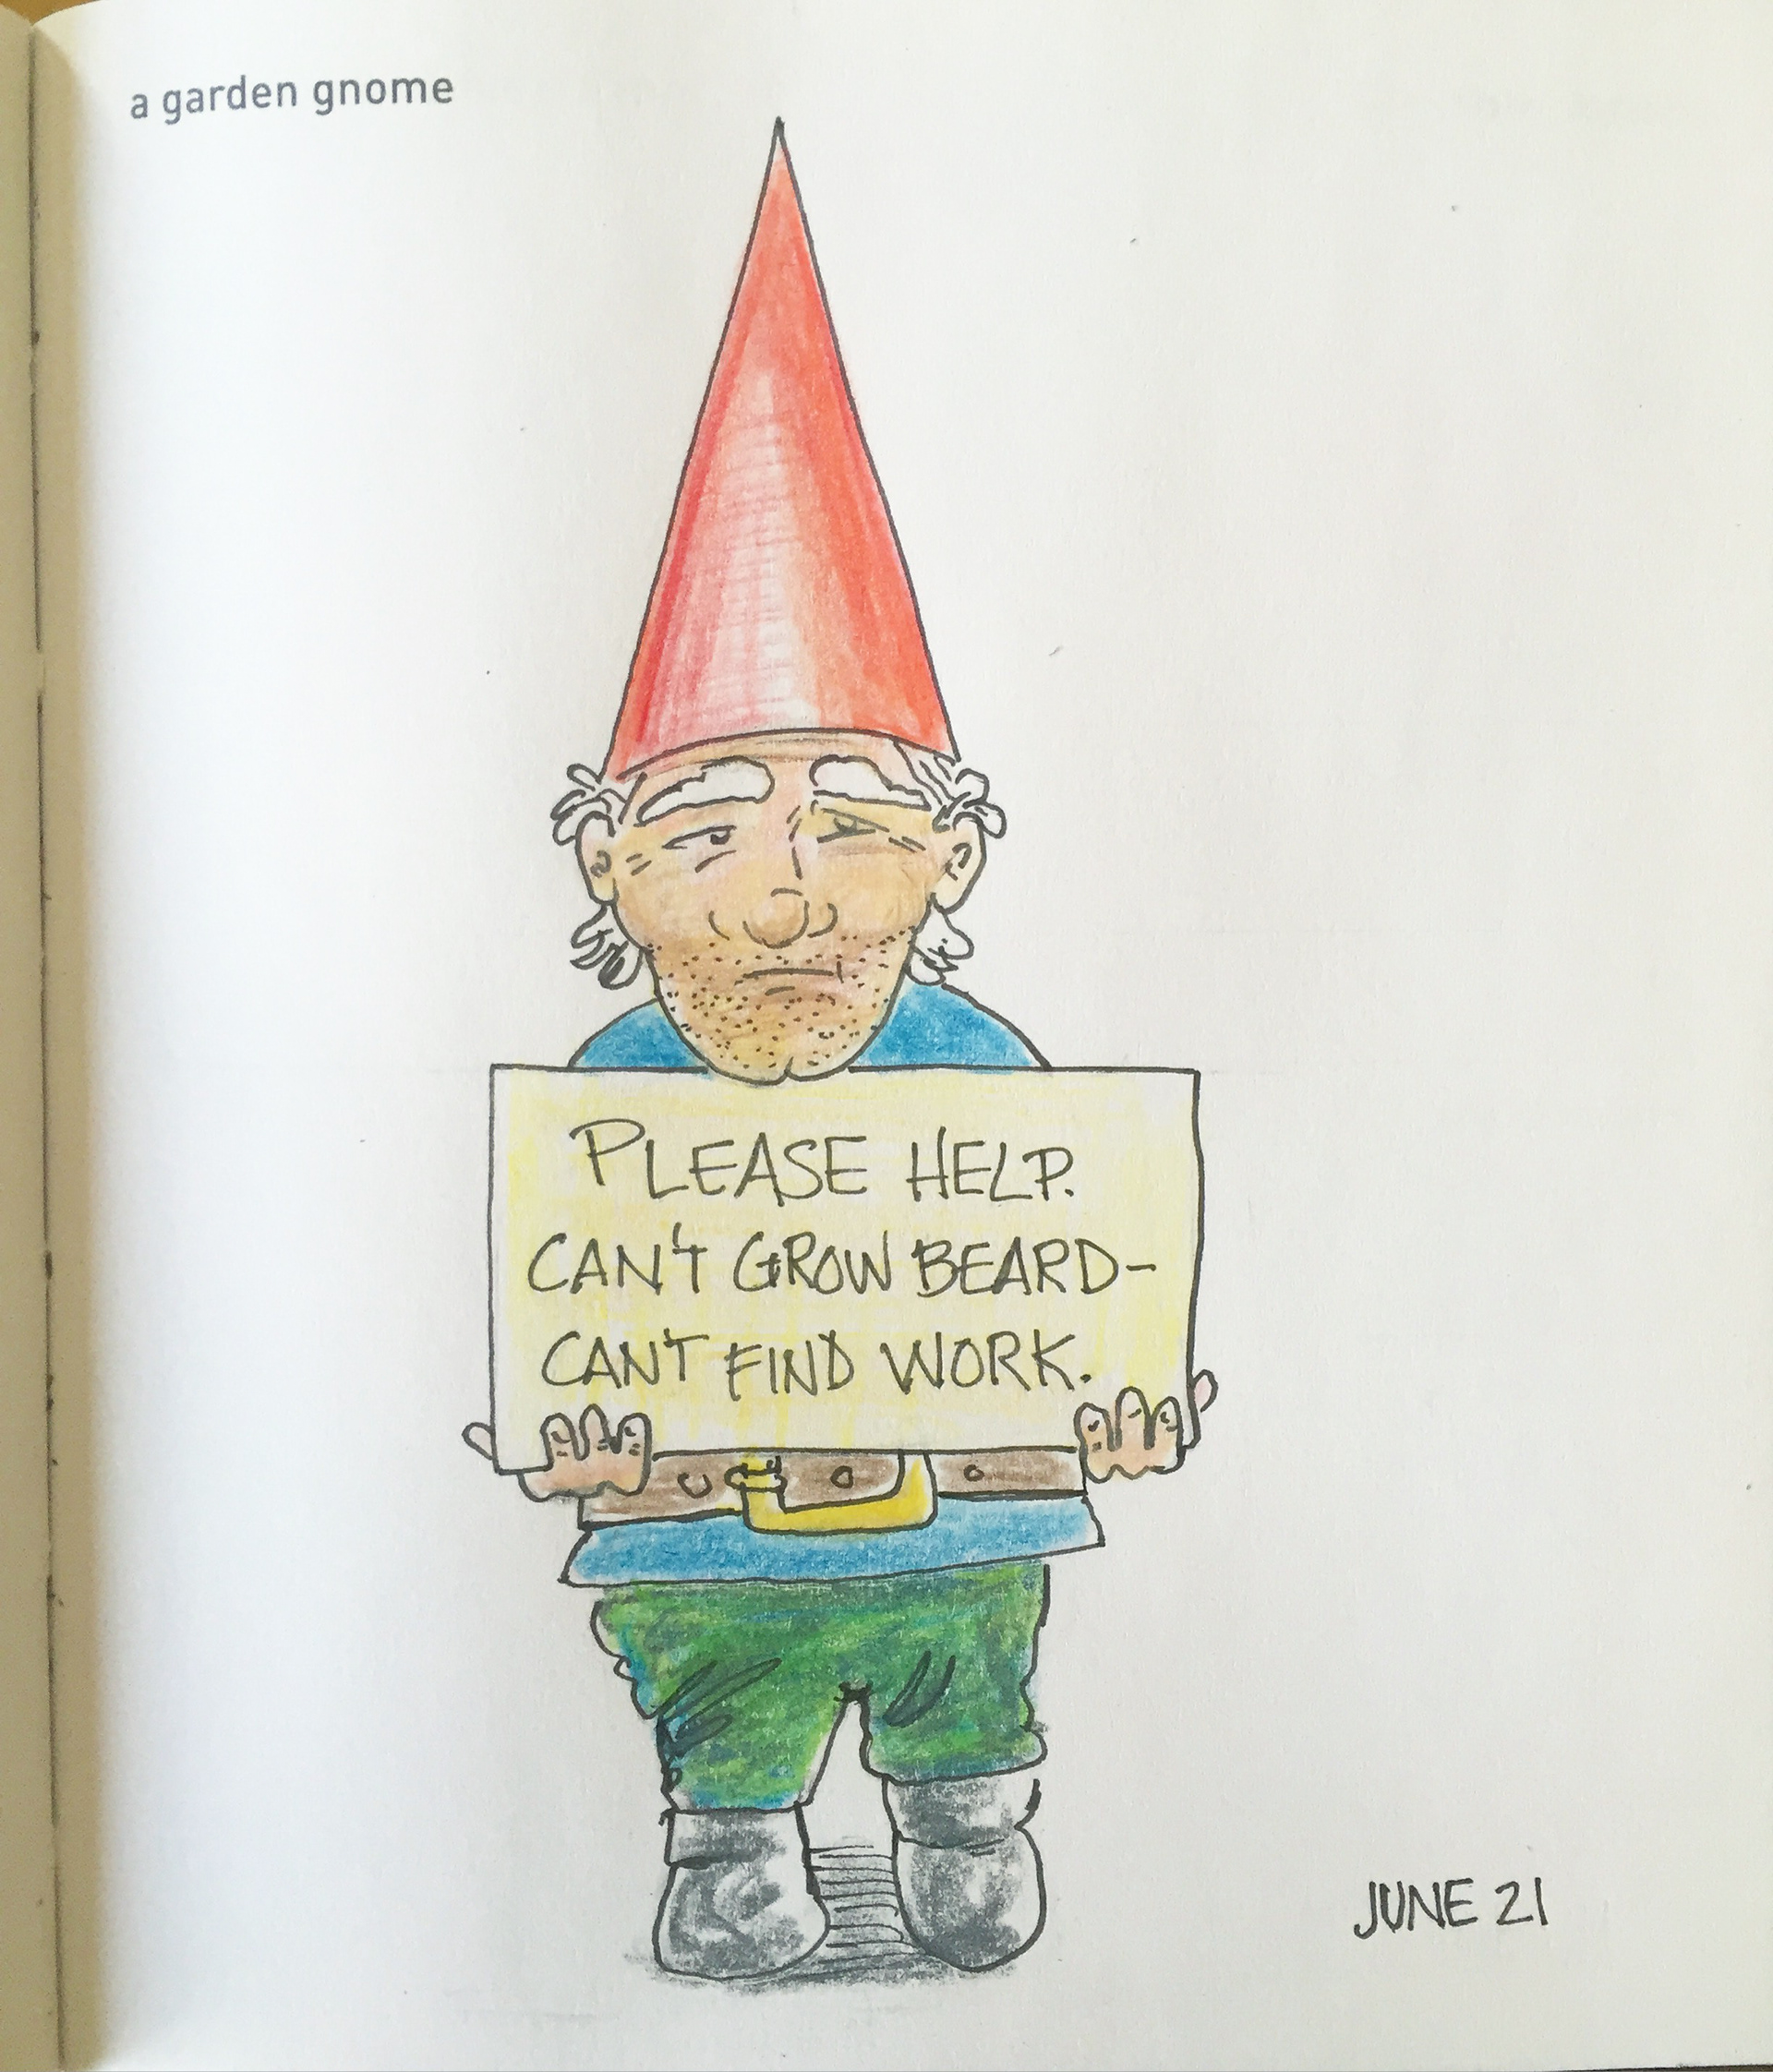 a garden gnome
PLEASE HELP.
CAN'T GROW BEARD-
CAN'T FIND WORK.
JUNE 21